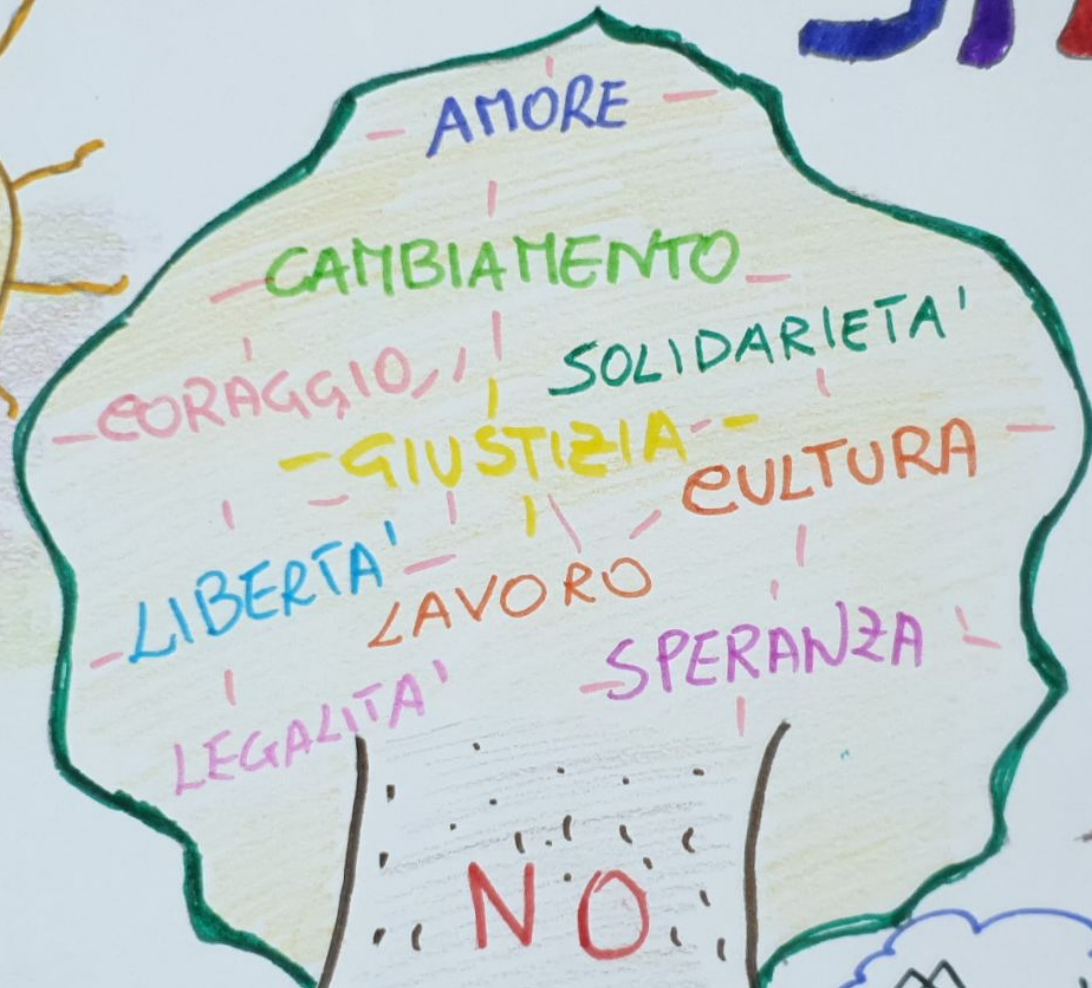 AMORE
CAMBIAMENTO
SOLIDARIETA'
CORAGGIO
GIUSTIZIA
CULTURA
LIBERTA'
LAVORO
SPERANZA
LEGALITA'
NO